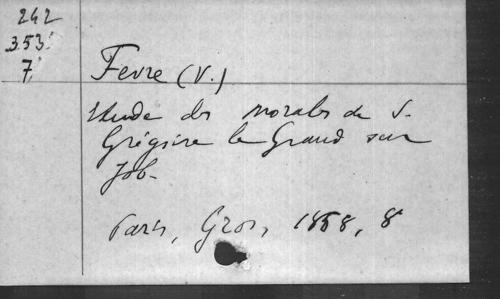 242
353
7
Fevre (V.)
Etude des morales de S.
Grégoire le Grand sur
Job.
Paris, Gros, 1858, 8°